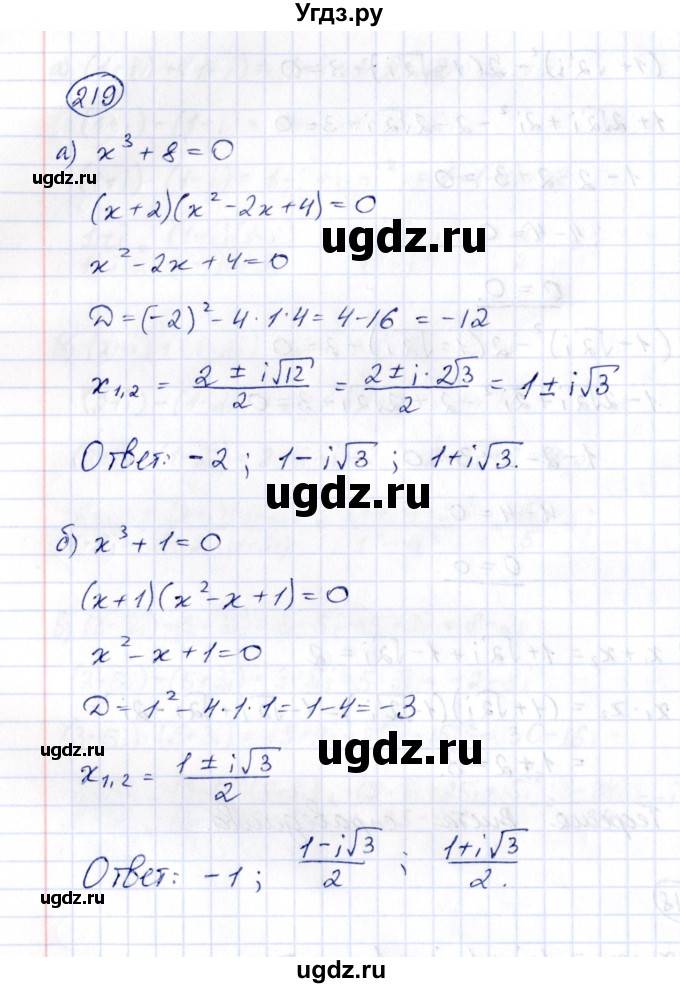 Угдз.ру
219
а) x³ + 8 = 0
ugdz.ru
(x + 2)(x² - 2x + 4) = 0
ugdz.ru
x² - 2x + 4 = 0
D = (-2)² - 4·1·4 = 4 - 16 = -12
ugdz.ru
x₁,₂ = (2 ± i√12)/2 = (2 ± i·2√3)/2 = 1 ± i√3
Ответ: -2 ; 1 - i√3 ; 1 + i√3.
ugdz.ru
б) x³ + 1 = 0
(x + 1)(x² - x + 1) = 0
x² - x + 1 = 0
D = 1² - 4·1·1 = 1 - 4 = -3
ugdz.ru
ugdz.ru
x₁,₂ = (1 ± i√3)/2
Ответ: -1 ; (1 - i√3)/2 ; (1 + i√3)/2.
ugdz.ru
ugdz.ru
ugdz.ru